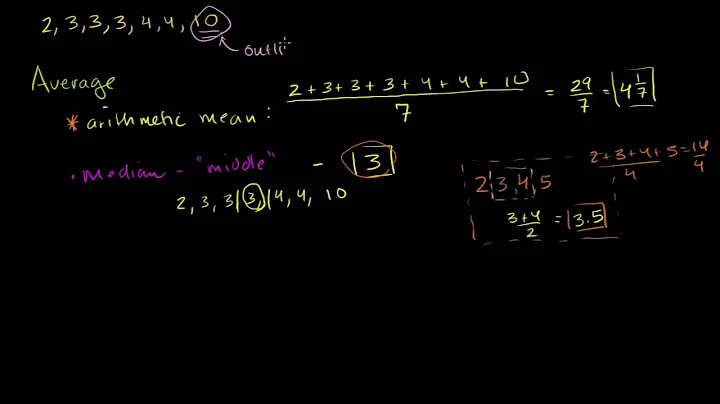 2, 3, 3, 3, 4, 4, 10
outli
Average
* arithmetic mean : 2 + 3 + 3 + 3 + 4 + 4 + 10 / 7 = 29 / 7 = 4 1/7
• Median - "middle" - 3
2, 3, 3 | 3, | 4, 4, 10
2, 3, 4, 5
3+4 / 2 = 3.5
2 + 3 + 4 + 5 / 4 = 14 / 4